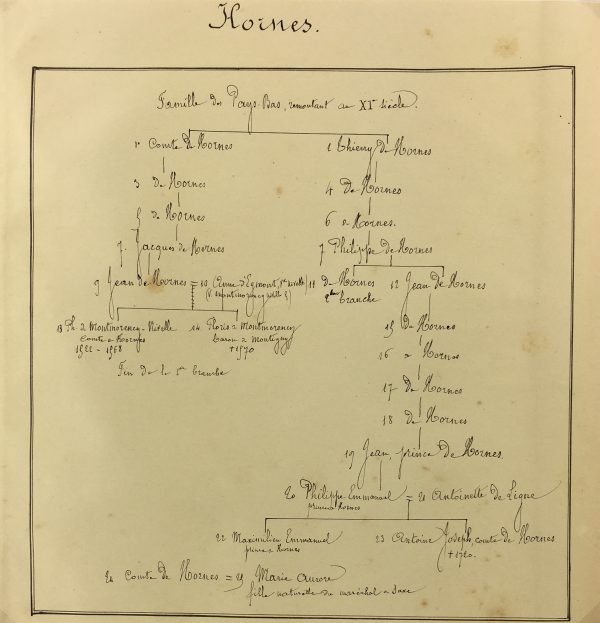 Hornes.
Famille des Pays-Bas, remontant au XIe siècle.
1 Comte de Hornes
2 Thierry de Hornes
3 de Hornes
4 de Hornes
5 de Hornes
6 de Hornes.
7 Jacques de Hornes
7 Philippe de Hornes
9 Jean de Hornes = 10 Anne d'Egmont,
(V. Montmorency
11 de Hornes
2e branche
12 Jean de Hornes
13 Ph. de Montmorency-Nivelle
Comte de Hornes
1568
14 Floris de Montmorency
baron de Montigny
+1570
Fin de la 1re branche
15 de Hornes
16 de Hornes
17 de Hornes
18 de Hornes
19 Jean, prince de Hornes.
20 Philippe-Emmanuel = 21 Antoinette de Ligne
prince de Hornes
22 Maximilien Emmanuel
prince de Hornes
23 Antoine Joseph, comte de Hornes
+1720.
24 Comte de Hornes = 25 Marie Aurore
fille naturelle du maréchal de Saxe